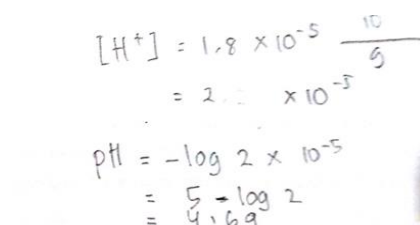 [H⁺] = 1,8 × 10⁻⁵ 10/9
= 2 × 10⁻⁵
pH = -log 2 × 10⁻⁵
= 5 - log 2
= 4,69